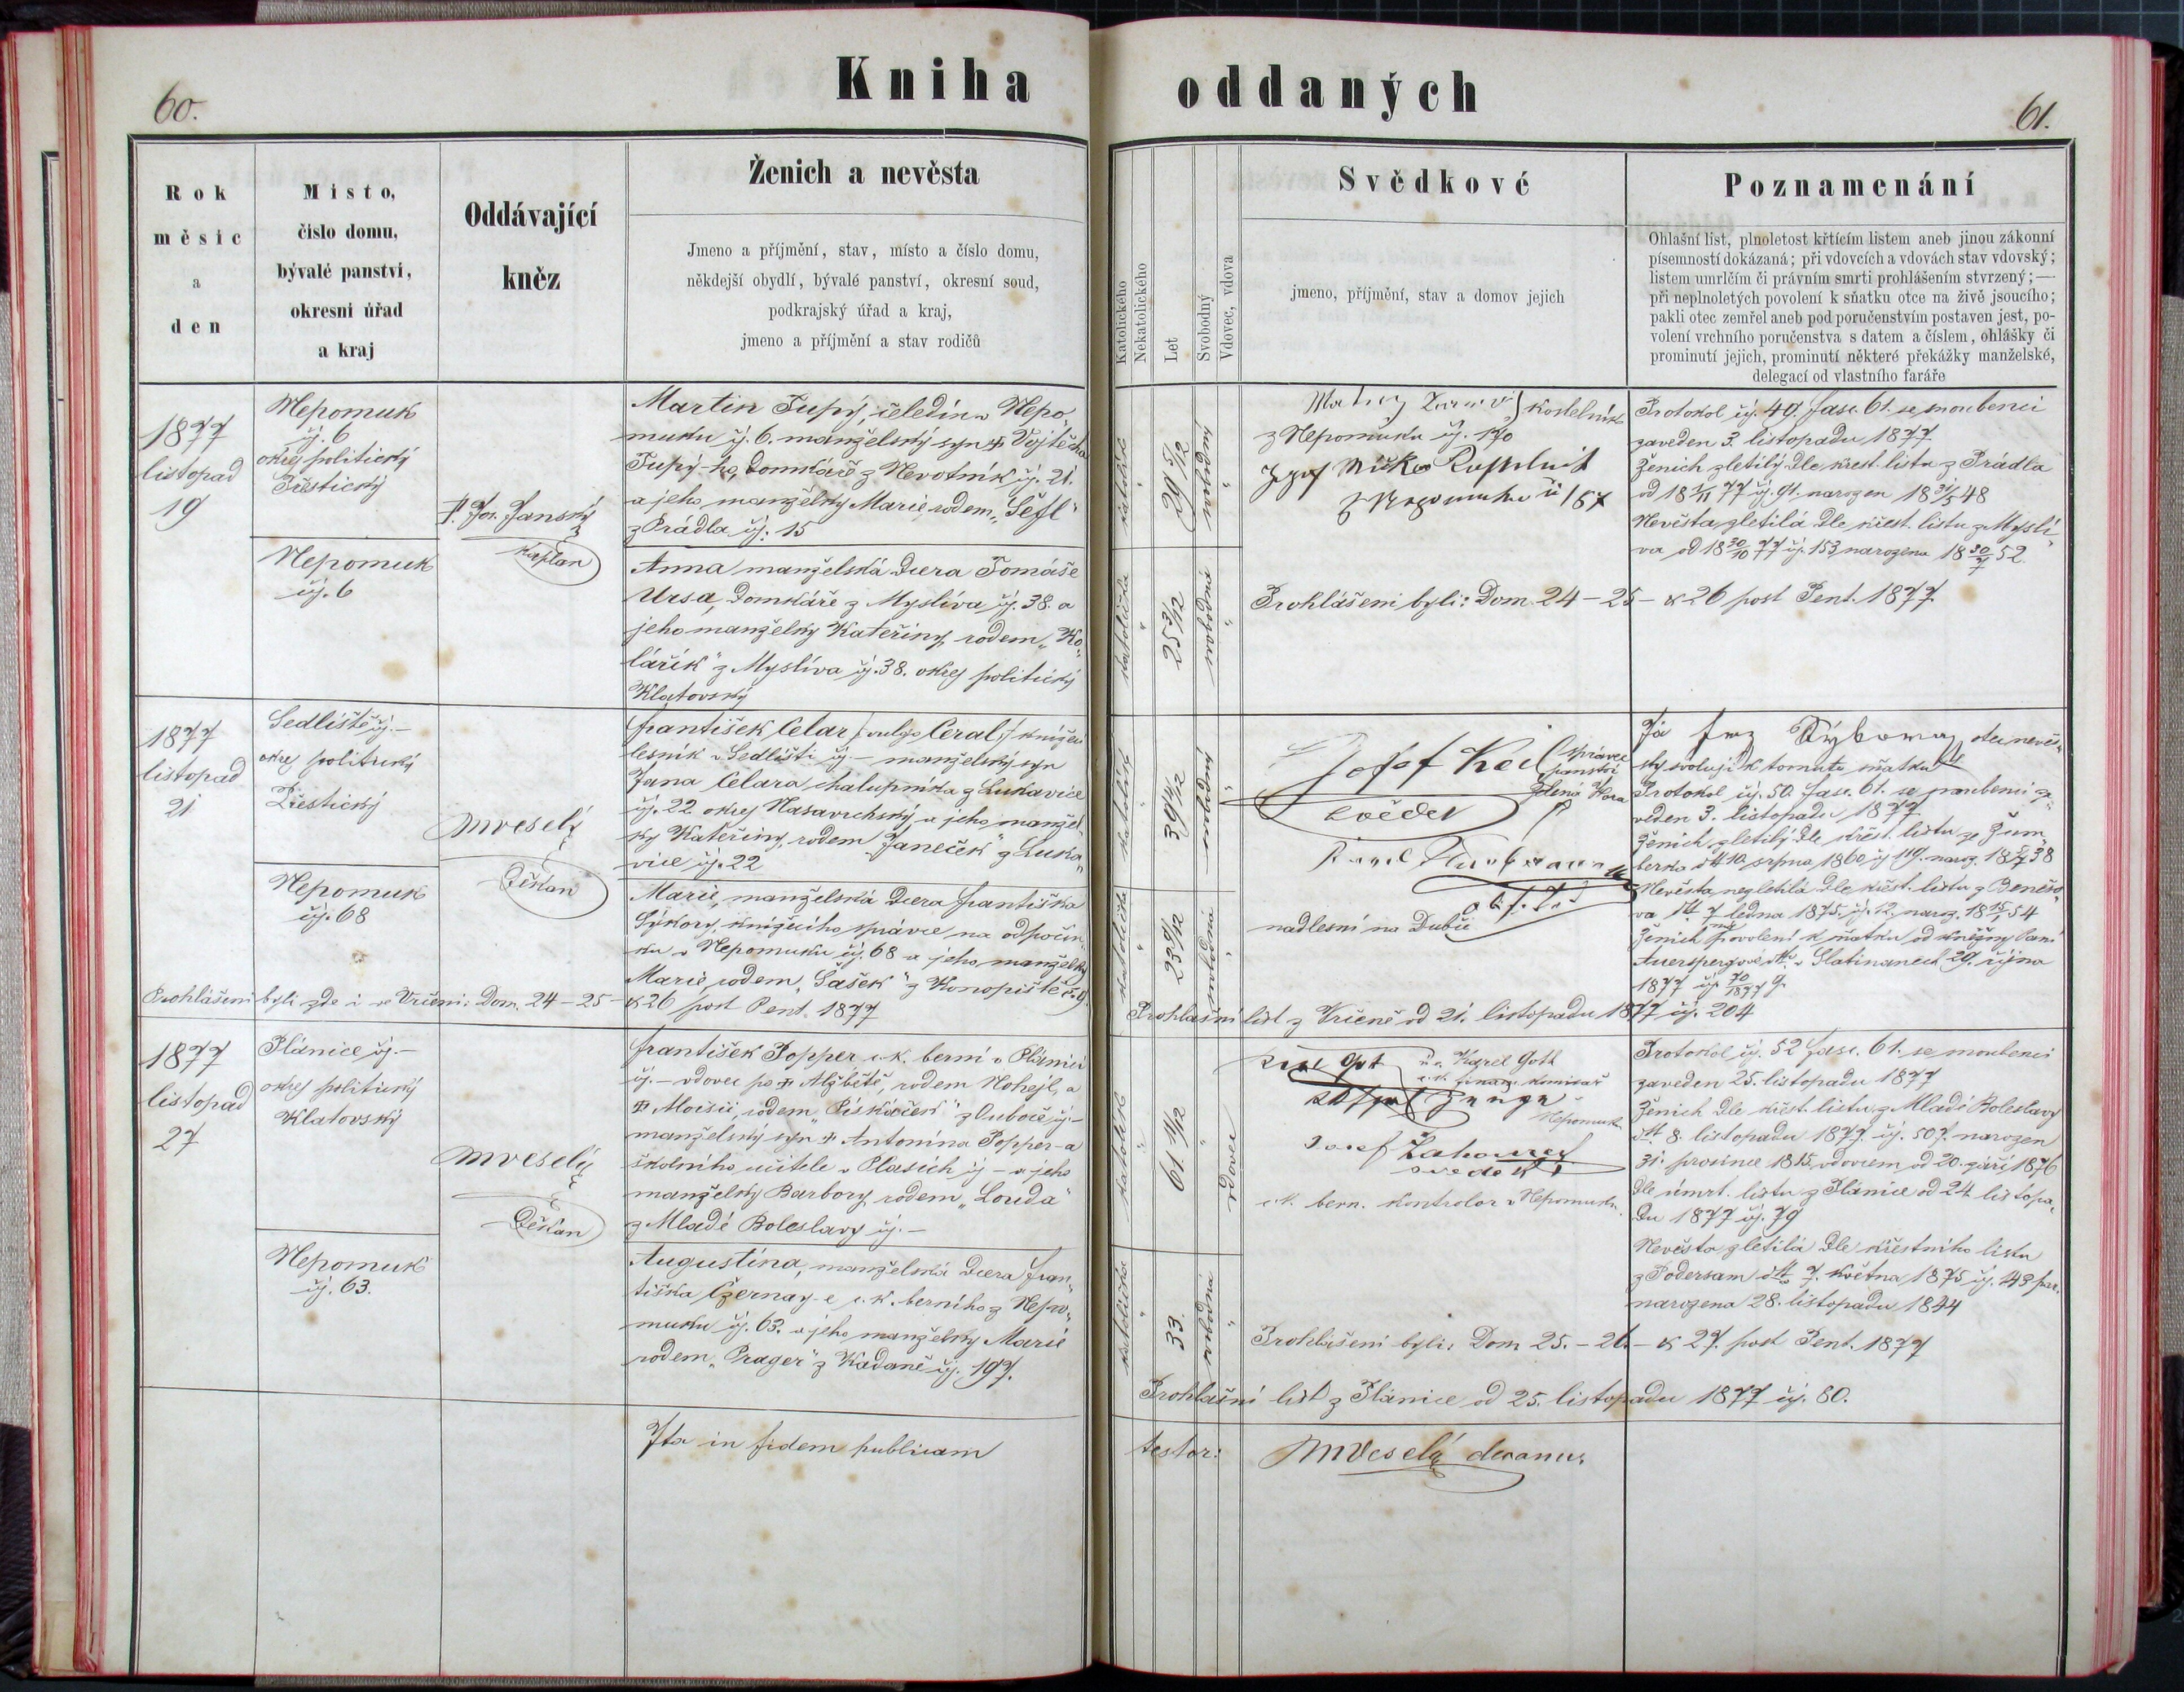 60.
Kniha
Rok
měsíc
a
den
Místo,
číslo domu,
bývalé panství,
okresní úřad
a kraj
Oddávající
kněz
Ženich a nevěsta
Jmeno a příjmění, stav, místo a číslo domu,
někdejší obydlí, bývalé panství, okresní soud,
podkrajský úřad a kraj,
jmeno a příjmění a stav rodičů
1877
listopad
19
Nepomuk
čj. 6
okres politický
Přestický
Nepomuk
čj. 6
P. Jos. Janský
kaplan
Martin Tupý, čeledín v Nepo
muku čj. 6. manželský syn † Vojtěcha
Tupý-ho, domkáře z Nevotník čj. 21.
a jeho manželky Marie, rodem „Šefl“
z Prádla čj. 15
Anna manželská dcera Tomáše
Ursa, domkáře z Myslíva čj. 38. a
jeho manželky Kateřiny, rodem „Ko„
lářík“ z Myslíva čj. 38. okres politický
Klatovský
1877
listopad
21
Sedliště čj. –
okres politický
Přestický
Nepomuk
čj. 68
MVeselý
děkan
František Celar /: vulgo Ceral :/ knížecí
lesník v Sedlišti čj – manželský syn
Jana Celara, chalupníka z Lukavice
čj. 22 okres Nasavrchský, a jeho manžel„
ky Kateřiny, rodem „Janeček“ z Luka„
vice čj. 22
Marie, manželská dcera Františka
Sýkory, knížecího správce na odpočin„
ku v Nepomuku čj. 68 a jeho manželky
Marie, rodem „Šašek“ z Konopiště
Prohlášeni byli zde i ve Vrčeni: Dom. 24 – 25 – & 26 post Pent. 1877
1877
listopad
27
Plánice čj. –
okres politický
Klatovský
Nepomuk
čj. 63.
MVeselý
děkan
František Popper c. k. berní v Plánici
čj. – vdovec po † Alžbětě, rodem Nohejl, a
† Aloisii, rodem „Piskáček“ z čj –
manželský syn † Antonína Popper-a
školního učitele v Plasích čj – a jeho
manželky Barbory, rodem „Louda“
z Mladé Boleslavy čj. –
Augustina, manželská dcera Fran„
tiška Czernay-e c. k. berního z Nepo„
muku čj. 63. a jeho manželky Marie
rodem „Prager“ z Kadaně čj. 197.
Ita in fidem publicam
oddaných
61.
Katolického
Nekatolického
Let
Svobodný
Vdovec, vdova
Svědkové
jmeno, příjmění, stav a domov jejich
Poznamenání
Ohlašní list, plnoletost křtícím listem aneb jinou zákonní
písemností dokázaná; při vdovcích a vdovách stav vdovský;
listem umrlčím či právním smrti prohlášením stvrzený; —
při neplnoletých povolení k sňatku otce na živě jsoucího;
pakli otec zemřel aneb pod poručenstvím postaven jest, po-
volení vrchního poručenstva s datem a číslem, ohlášky či
prominutí jejich, prominutí některé překážky manželské,
delegací od vlastního faráře
katolík
29 5/12
svobodný
katolička
25 3/12
svobodná
kostelník
z Nepomuka čj. 170
z Nepomuka č 157
Protokol čj. 49. fasc. 61. se snoubenci
zaveden 3. listopadu 1877
Ženich zletilý dle křest. listu z Prádla
od 18 1/11 77 čj. 91. narozen 18 31/5 48
Nevěsta zletilá dle křest. listu z Myslí„
va od 18 30/10 77 čj. 153 narozena 18 30/7 52.
Prohlášeni byli: Dom. 24 – 25 – & 26 post Pent. 1877
katolík
svobodný
katolička
svobodná
Josef Keil správce
panství
Zelená Hora
svědek
nadlesní na Dubči
Já Frz Sýkora, otec nevěs„
ty svoluji k tomuto sňatku
Protokol čj. 50. fasc. 61. se snoubenci za„
veden 3. listopadu 1877
Ženich zletilý dle křest. listu ze Žum„
berka dtt 10. srpna 1860 čj 119. naroz. 18 5/7 38
Nevěsta nezletilá dle křest. listu z Benešo„
va dtt 7 ledna 1875. čj. 12. naroz. 18 15/1 54
Ženich má povolení k sňatku od kněžny Paní
Auerspergové dtto v Slatinanech 29. října
1877 čj. 70/1877 g.
Prohlašní list z Vrčeně od 21. listopadu 1877 čj. 204
katolík
61 11/12
vdovec
katolička
33.
svobodná
Karel Goth
c. k. financ. komisař
Nepomuk
Josef Zahourek
svědek
c. k. bern. kontrolor v Nepomuku.
Protokol čj. 52 fasc. 61. se snoubenci
zaveden 25. listopadu 1877
Ženich dle křest. listu z Mladé Boleslavy
dtt 8. listopadu 1877. čj. 507. narozen
31. prosince 1815, vdovcem od 20. září 1876
dle úmrt. listu z Plánice od 24 listopa„
du 1877 čj. 79
Nevěsta zletilá dle křestního listu
z Podersam dtto 7. května 1875 čj. 43 par.
narozena 28. listopadu 1844
Prohlášeni byli: Dom 25. – 26. – & 27. post Pent. 1877
Prohlašní list z Plánice od 25. listopadu 1877 čj. 80.
testor: MVeselý decanus